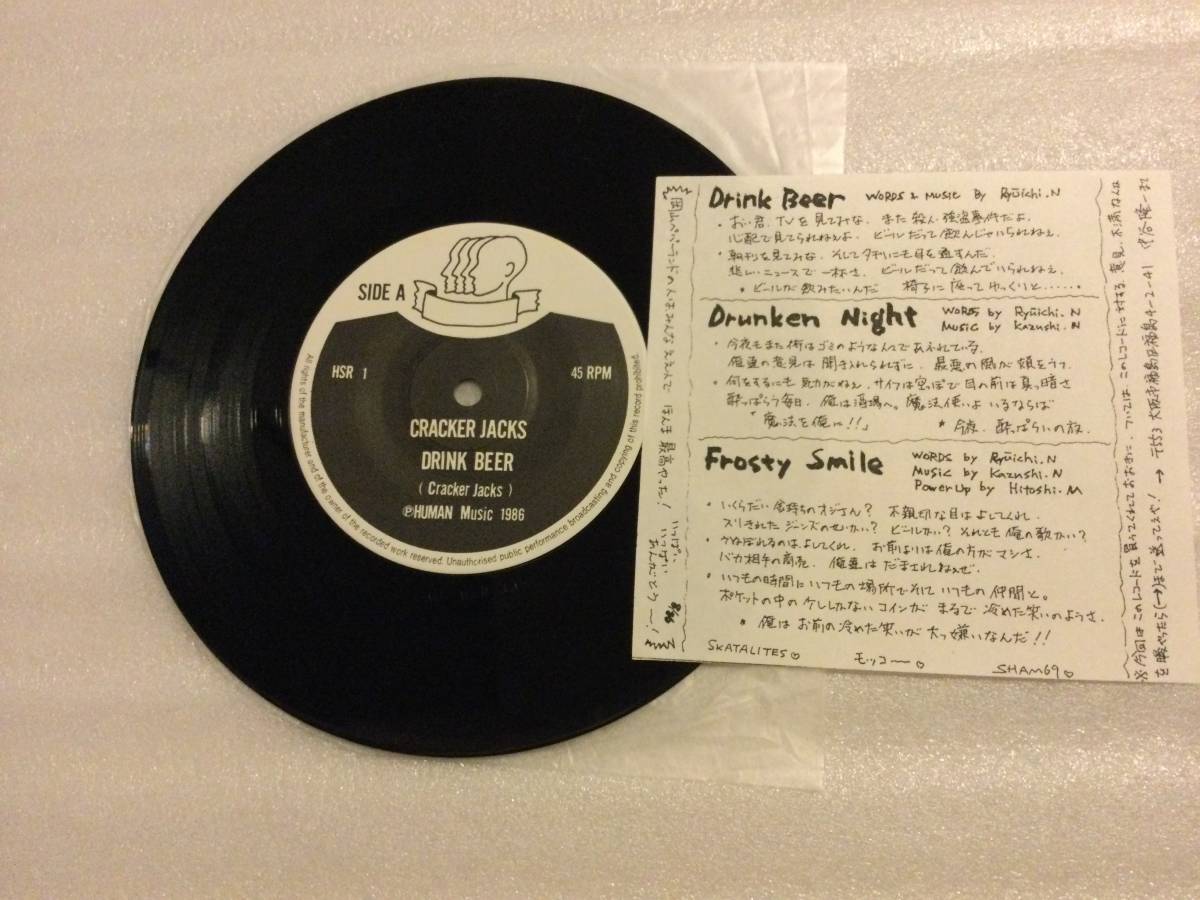 SIDE A
HSR 1
45 RPM
CRACKER JACKS
DRINK BEER
( Cracker Jacks )
ⓅHUMAN Music 1986
All rights of the manufacturer and of the owner of the recorded work reserved. Unauthorised public performance broadcasting and copying of this record prohibited.
岡山ペパーランドの人はみんなええ人で ほんま最高やった! いっぱいいっぱいあんがとうー!
Drink Beer WORDS & MUSIC By Ryūichi.N
・おい君、TVを見てみな、また殺人・強盗事件だよ、
心配で見てられねぇよ、ビールだって飲んじゃいられねぇ、
・朝刊を見てみな、そして夕刊にも目を通すんだ、
悲しいニュースで一杯さ、ビールだって飲んでいられねぇ、
*ビールが飲みたいんだ 椅子に座ってゆっくりと……。
Drunken Night WORDS by Ryūichi.N
Music by Kazushi.N
・今夜もまた街はゴミのようなもんであふれている、
俺達の意見は聞き入れられずに、最悪の風が頬をうつ
・何をするにも気力がねぇ、サイフは空っぽで目の前は真っ暗さ
酔っぱらう毎日、俺は酒場へ。魔法使いよいるならば
「魔法を俺に!!」 *今夜、酔っぱらいの夜、
Frosty Smile WORDS by Ryūichi.N
Music by Kazushi.N
Power Up by Hitoshi.M
・いくらだい金持ちのオジさん? 不親切な目はよしてくれ、
スリきれたジーンズのせいかい? ビールかい? それとも俺の歌かい?
・うぬぼれるのはよしてくれ、お前よりは俺の方がマシさ、
バカ相手の商売、俺達はだまされねぇぜ、
・いつもの時間にいつもの場所でそしていつもの仲間と。
ポケットの中のケししかないコインがまるで冷めた笑いのようさ、
*俺はお前の冷めた笑いが大っ嫌いなんだ!!
SKATALITES♡ モッコー♡ SHAM69♡
※今回はこのレコードを買ってくれておおきに、ついては、このレコードに対する、意見、不満なんぞ